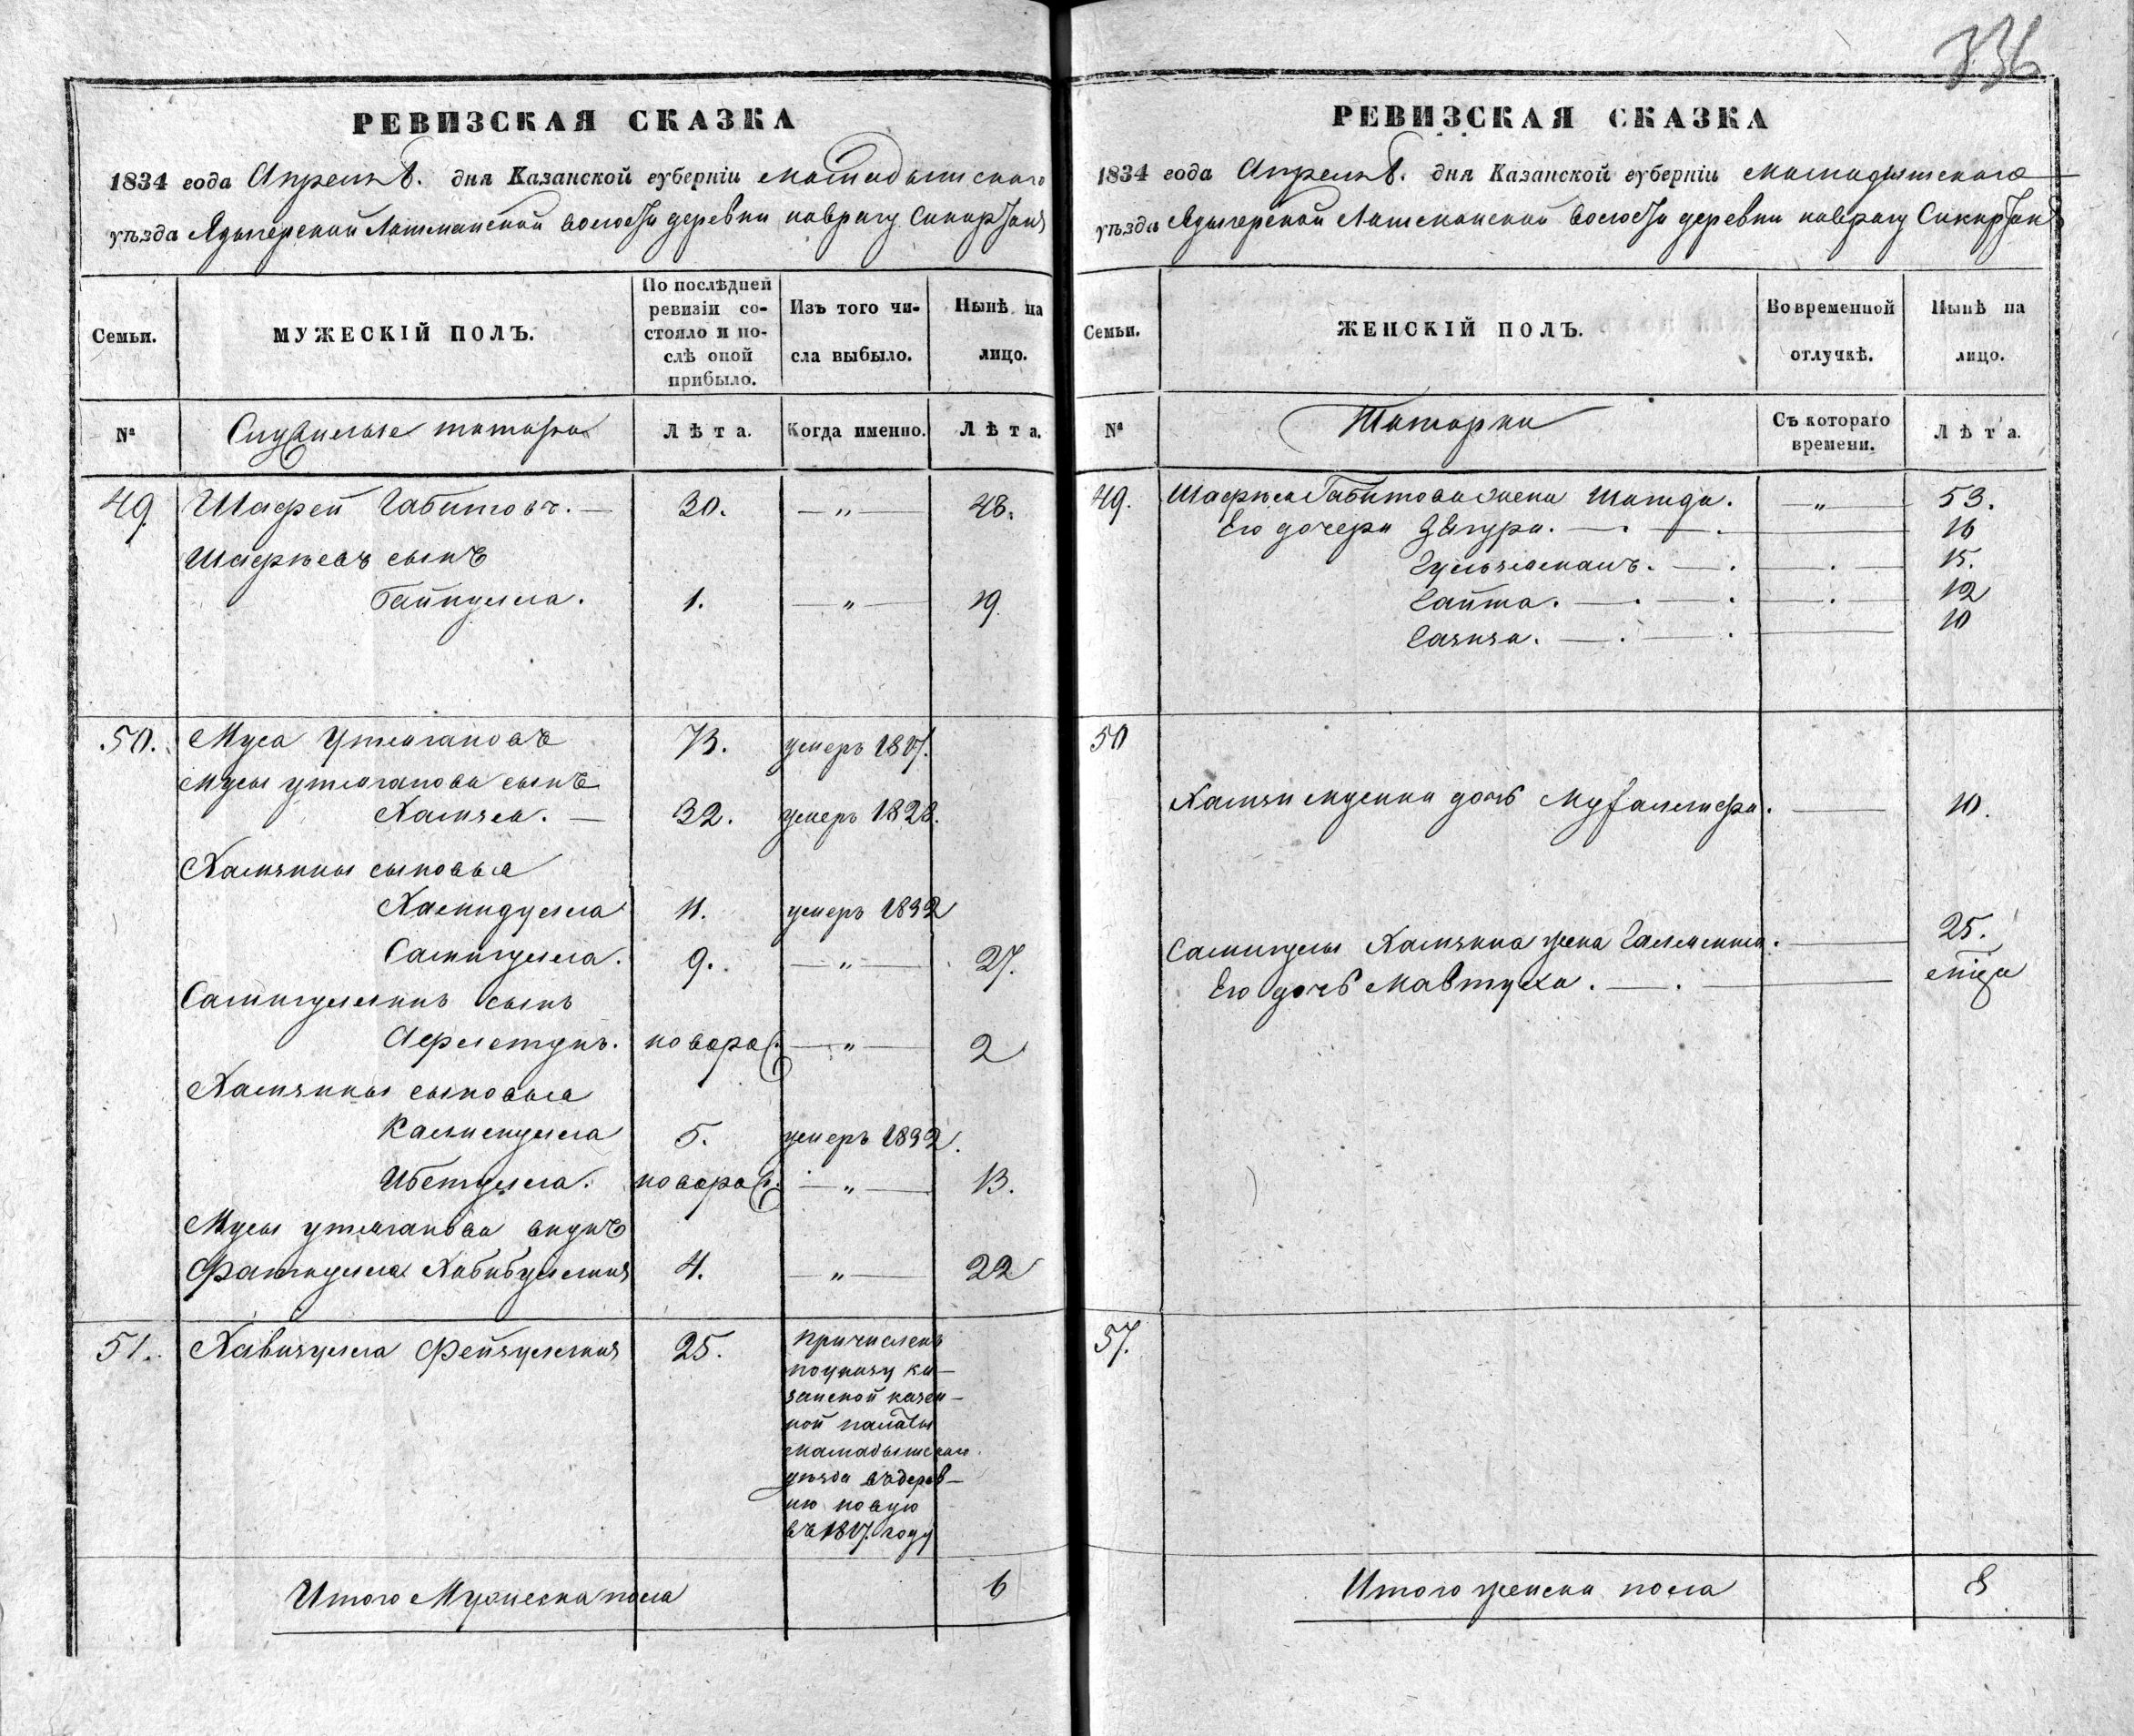 336
РЕВИЗСКАЯ СКАЗКА
1834 года Апреля 8. дня Казанской губерніи Мамадышскаго
уѣзда Ядыгерской Лашманской волости деревни поврагу
МУЖЕСКІЙ ПОЛЪ.
Семьи.
По послѣдней ревизіи состояло и послѣ оной прибыло.
Изъ того числа выбыло.
Нынѣ на лицо.
№
Служилые татара
Лѣта.
Когда именно.
Лѣта.
49. Шафей Габитовъ. — 30. — „ — 48.
Шафѣевъ сынъ
Гайнулла. 1. — „ — 19.
50. Муса Утягановъ 73. умеръ 1817.
Мусы утяганова сынъ
Хамзя. — 32. умеръ 1828.
Хамзины сыновья
Хамидулла 11. умеръ 1832
Самигулла. 9. — „ — 27.
Самигуллинъ сынъ
Афлетунъ. новорож. — „ — 2
Хамзины сыновья
Калимулла 5. умеръ 1832.
Ибетулла. новорож. — „ — 13.
Мусы утяганова внукъ
Фаткулла Хабибуллинъ 4. — „ — 22
51. Хавизулла Фейзуллинъ 25. причисленъ
поуказу ка-
занской казен-
ной палаты
мамадышскаго
уѣзда въдерев-
ню новую
въ 1817. году
Итого Мужеска пола 6
РЕВИЗСКАЯ СКАЗКА
1834 года Апреля 8. дня Казанской губерніи Мамадышскаго
уѣзда Ядыгерской Лашманской волости деревни поврагу
Семьи.
ЖЕНСКІЙ ПОЛЪ.
Во временной отлучкѣ.
Нынѣ на лицо.
№
Татарки
Съ котораго времени.
Лѣта.
49. Шафѣя Габитова жена — „ — 53.
Его дочери 16
15.
Сайма. 12
10
50
Хамзи мусина дочь 10.
Самигулы Хамзина жена 25.
Его дочь Мавтуха.
51.
Итого женска пола 8